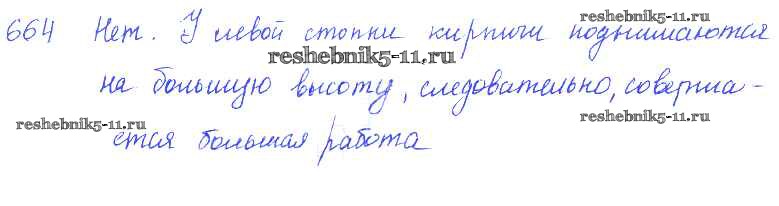 664 Нет. У левой стопки кирпичи поднимаются
на большую высоту, следовательно, соверша-
ется большая работа
reshebnik5-11.ru
reshebnik5-11.ru
reshebnik5-11.ru
reshebnik5-11.ru